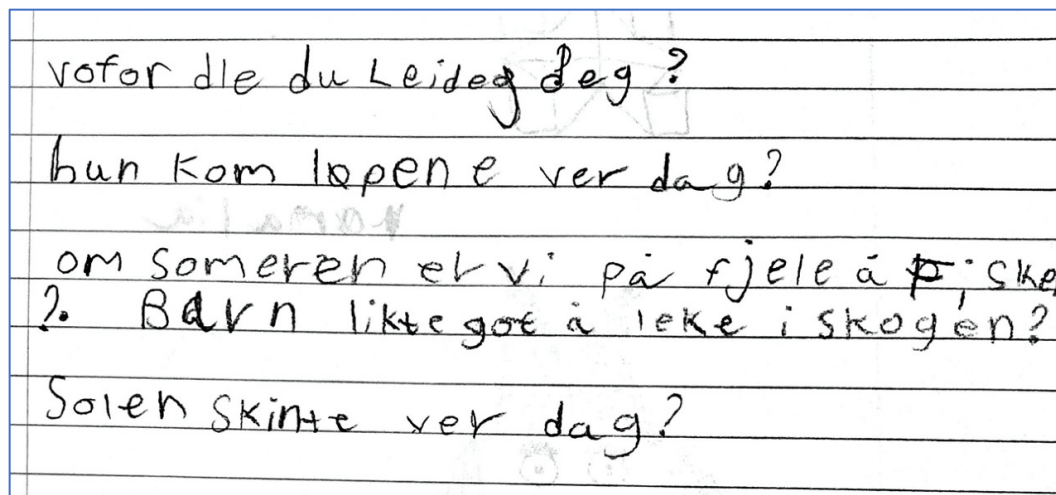 vofor dle du Leideg deg?
hun kom løpene ver dag?
om someren er vi på fjele å fiske
?. Barn likte got å leke i skogen?
Solen skinte ver dag?